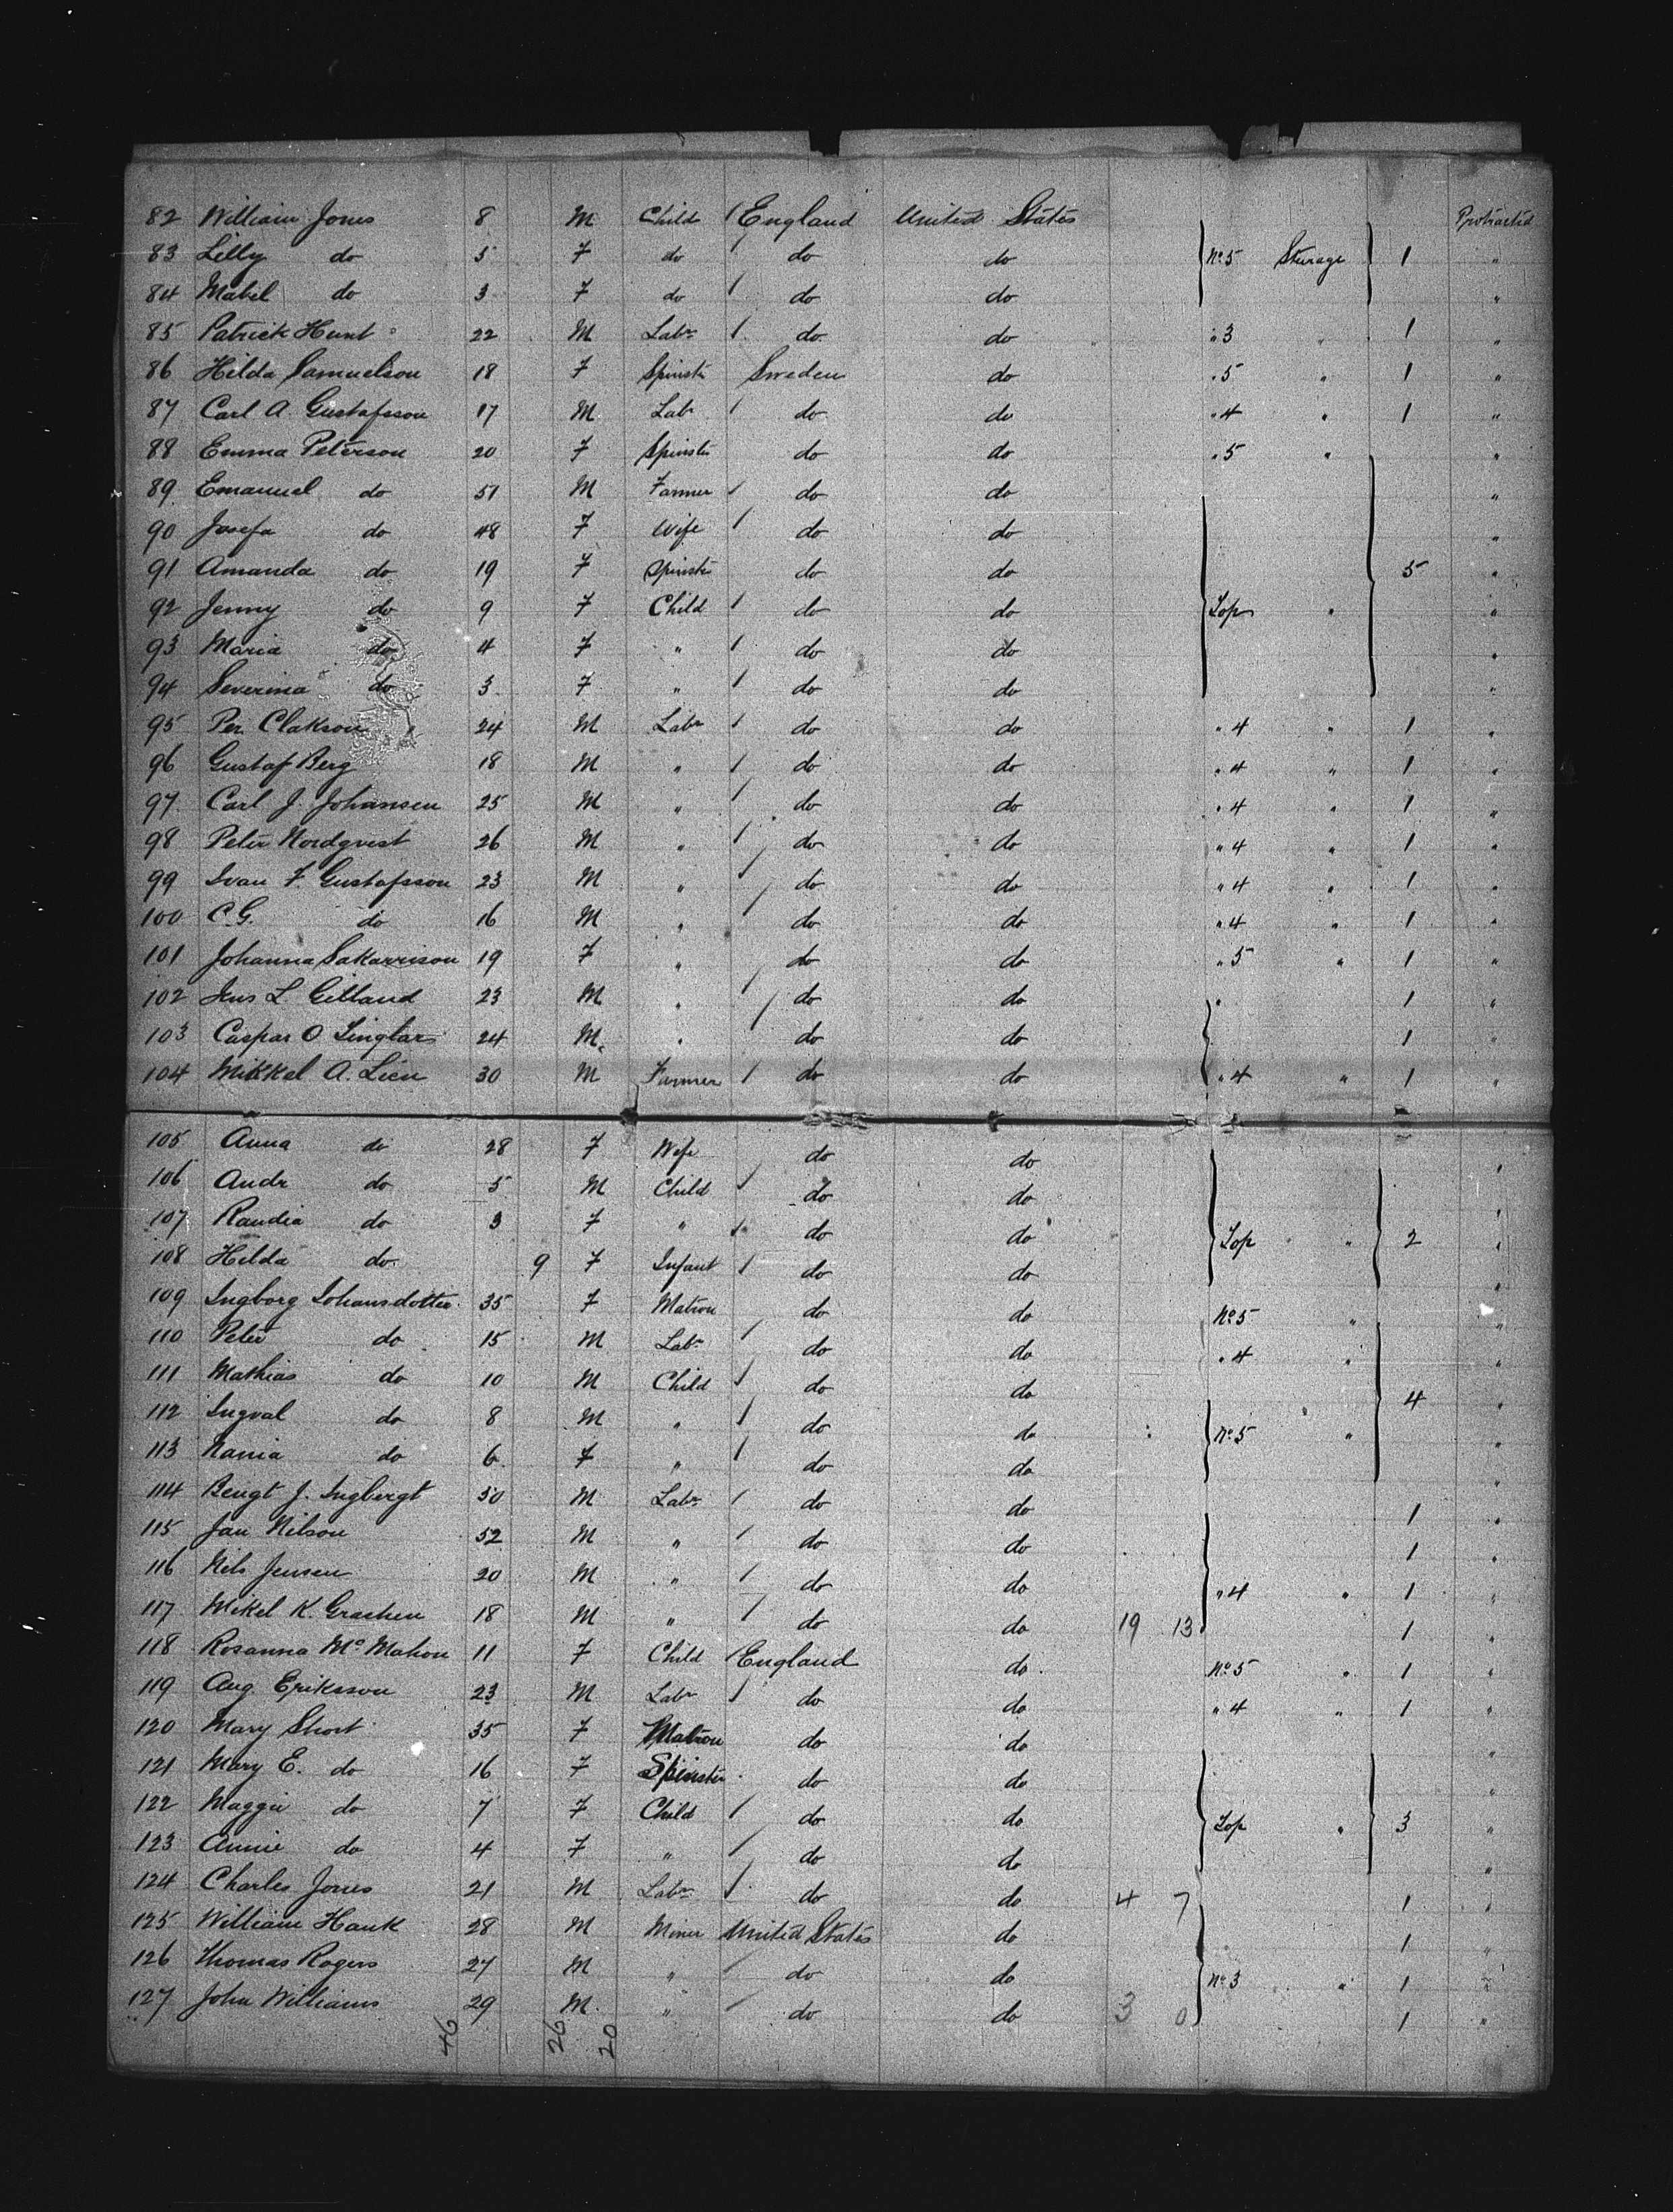 82 William Jones 8 M Child England United States Protracted
83 Lilly do 5 F do do do No 5 Steerage 1 "
84 Mabel do 3 F do do do "
85 Patrick Hunt 22 M Labr do do " 3 " 1 "
86 Hilda Samuelson 18 F Spinstr Sweden do " 5 " 1 "
87 Carl A Gustafsson 17 M Labr do do " 4 " 1 "
88 Emma Peterson 20 F Spinstr do do " 5 " "
89 Emanuel do 51 M Farmer do do "
90 Josefa do 48 F Wife do do "
91 Amanda do 19 F Spinstr do do 5 "
92 Jenny do 9 F Child do do Top " "
93 Maria do 4 F " do do "
94 Severina do 3 F " do do "
95 Per Clakson 24 M Labr do do " 4 " 1 "
96 Gustaf Berg 18 M " do do " 4 " 1 "
97 Carl J. Johansen 25 M " do do " 4 " 1 "
98 Peter Nordqvist 26 M " do do " 4 " 1 "
99 Ivan F. Gustafsson 23 M " do do " 4 " 1 "
100 C.G. do 16 M " do do " 4 " 1 "
101 Johanna Sakarrison 19 F " do do " 5 " 1 "
102 Jens L Gilland 23 M " do do " 1 "
103 Caspar O 24 M " do do 1 "
104 Mikkel A. Lien 30 M Farmer do do " 4 " 1 "
105 Anna do 28 F Wife do do "
106 Andr do 5 M Child do do "
107 Randia do 3 F " do do Top " 2 "
108 Hilda do 9 F Infant do do "
109 Ingborg Johansdotter 35 F Matron do do No 5 " "
110 Peter do 15 M Labr do do " 4 " "
111 Mathias do 10 M Child do do 4 "
112 Ingval do 8 M " do do No 5 " "
113 Nania do 6 F " do do "
114 Bengt J. Ingbergt 30 M Labr do do 1 "
115 Jan Nilson 52 M " do do 1 "
116 Nils Jensen 20 M " do do " 4 " 1 "
117 Mikel K. 18 M " do do 19 13 1 "
118 Rosanna McMahon 11 F Child England do No 5 " 1 "
119 Aug. Eriksson 23 M Labr do do " 4 " 1 "
120 Mary Short 35 F Matron do do "
121 Mary E. do 16 F Spinster do do "
122 Maggie do 7 F Child do do Top " 3 "
123 Annie do 4 F " do do "
124 Charles Jones 21 M Labr do do 4 7 1 "
125 William Hauk 28 M Miner United States do 1 "
126 Thomas Rogers 27 M " do do No 3 " 1 "
127 John Williams 29 M " do do 3 0 1 "
46 26 20